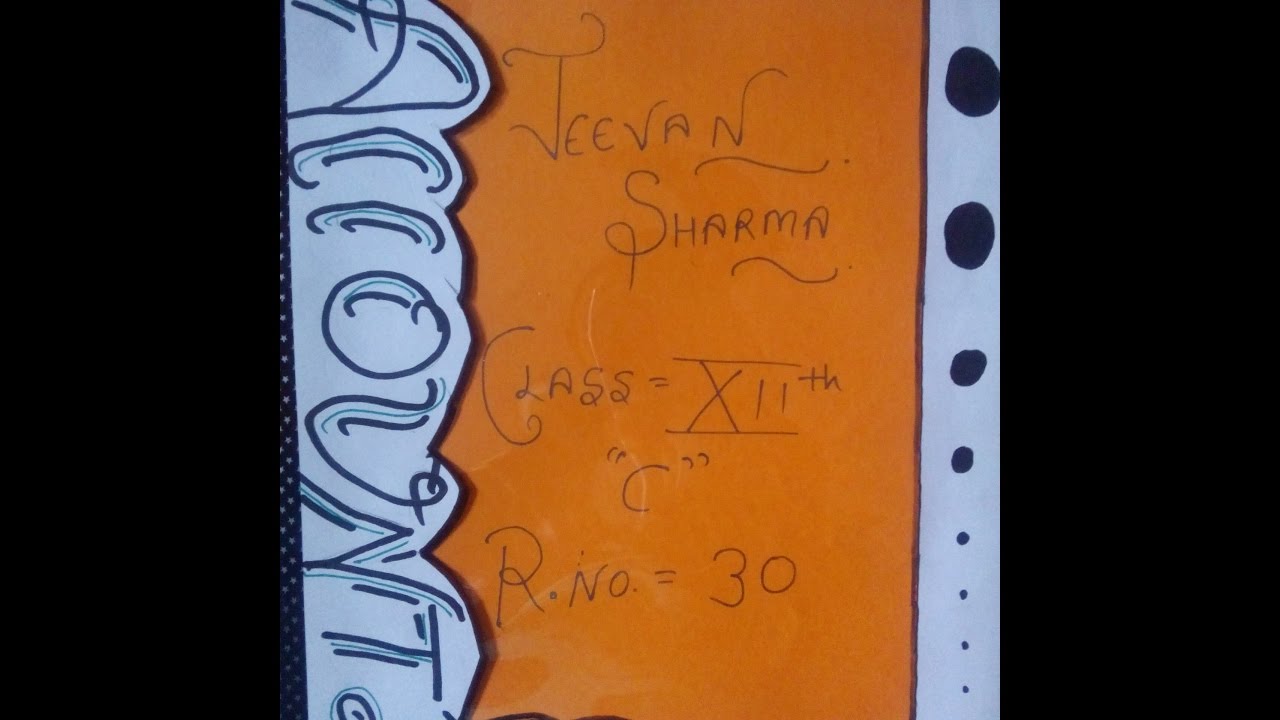 ACCOUNT
JEEVAN.
SHARMA.
CLASS = XIIth
"C"
R. No. = 30